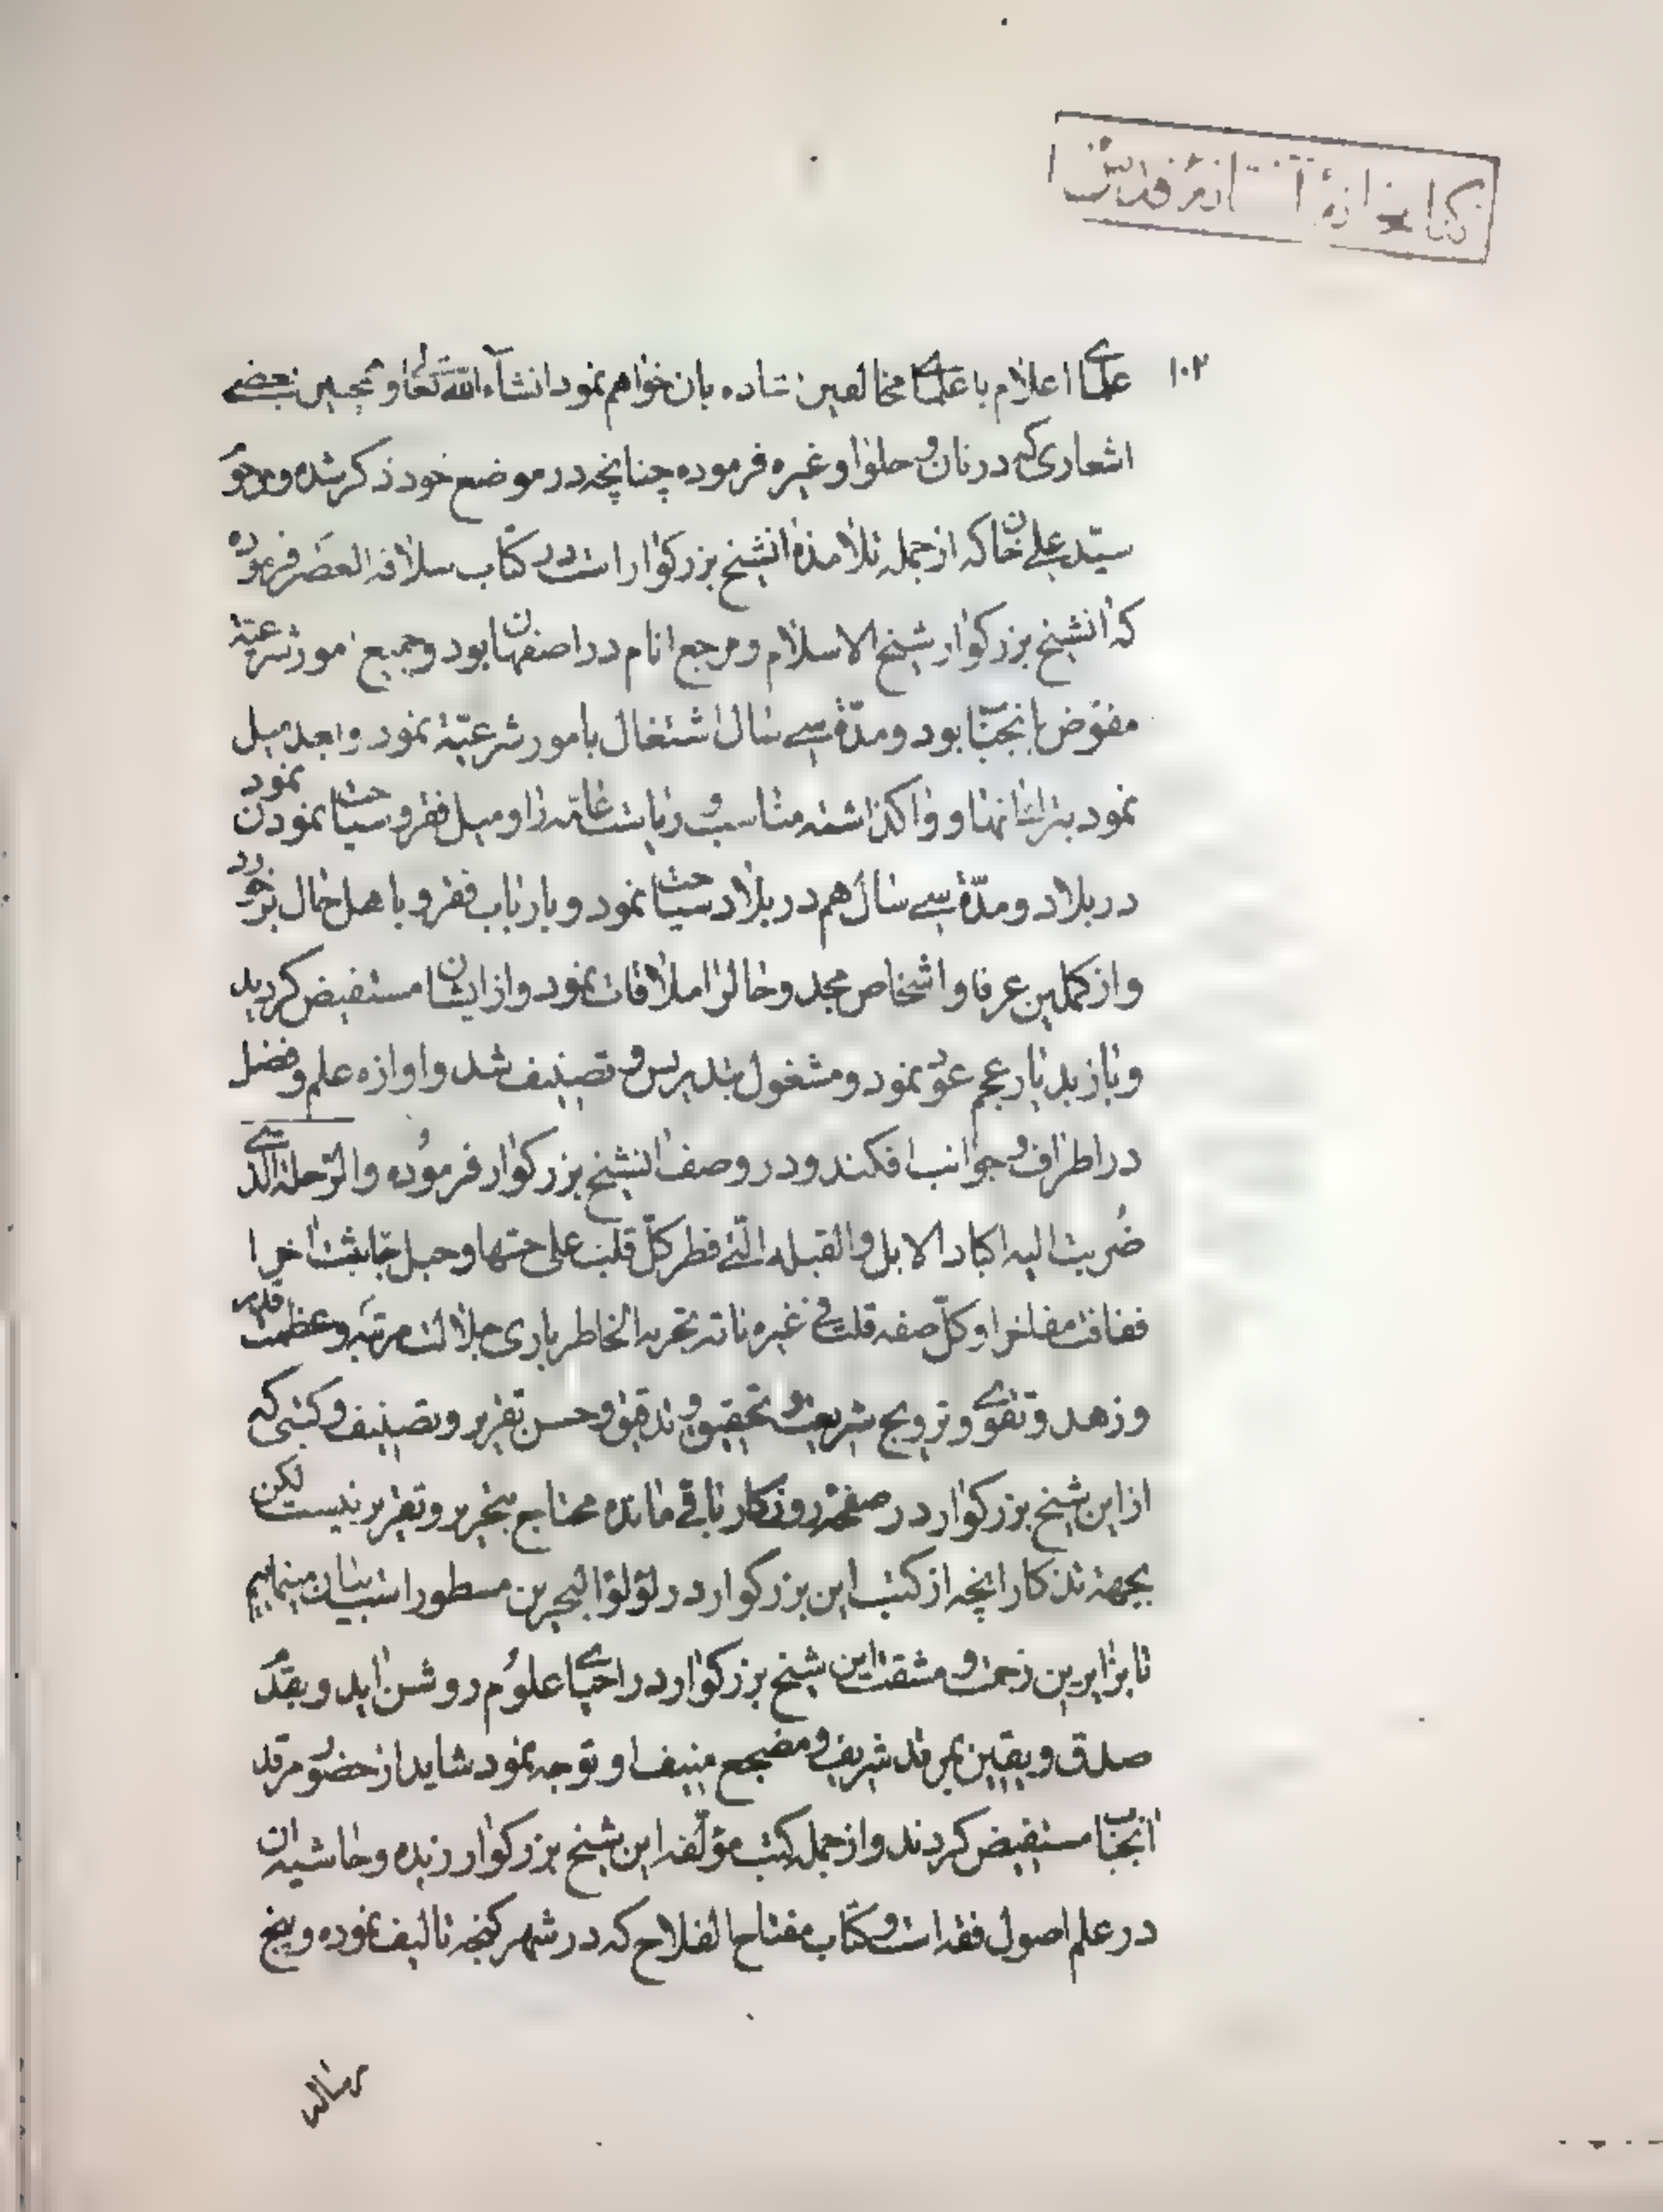 کتابخانهٔ آستانهٔ قدس
۱۰۲
علمای اعلام با علمای مخالفین شاده بان خواهم نمود انشآء الله تعالی و همچنین بعضی
اشعاری که در نان و حلوا و غیره فرموده چنانچه در موضع خود ذکر شده و مرحوم
سیّد علی خان که از جمله تلامذهٔ انشیخ بزرکوار است در کتاب سلافه العصر فرموده
که انشیخ بزرکوار شیخ الاسلام و مرجع انام در اصفهان بود و جمیع امور شرعیّهٔ
مفوّض بانجناب بود و مدّة سی سال اشتغال بامور شرعیّهٔ نمود و بعد میل
نمود و واکذاشته مناسب و ریاست عامّه را و میل فقر و سیاحت نمودن نمود
در بلاد و مدّة سی سال هم در بلاد سیاحت نمود و بارباب فقر و باهل حال برخورد
و از کملین عرفا و اشخاص مجد و حال را ملاقات نمود و از ایشان مستفیض کردید
و باز بدیار عجم عود نمود و مشغول بتدریس و تصنیف شد و اوازه علم و فضل
در اطراف و جوانب افکند و در وصف انشیخ بزرکوار فرموُده و الرّحلة الذی
ضُربت الیه اکباد الابل و القبله الّتی فطر کلّ قلب علی حبّها و جبل
و کلّ صفه قلت فی غیره فانه تجربه الخاطر باری جلالت مرتبه و عظمت قدر
و زهد و تقوی و ترویج شریعت و تحقیق و تدقیق و حسن تقریر و تصنیف و کتبی که
از این شیخ بزرکوار در صفحهٔ روزکار باقی مانده محتاج بتحریر و تقریر نیست لکن
بجهة تذکار انچه از کتب این بزرکوار در لؤلؤة البحرین مسطور است بیان مینمایم
تا برابرین زحمت و مشقت این شیخ بزرکوار در احیای علوُم روشن اید و بقدم
صدق و یقین بمرقد شریف و مضجع منیف او توجه نمود شاید از حضور مرقد
انجناب مستفیض کردند و از جمله کتب مؤلّفه این شیخ بزرکوار زبده و حاشیه ان
در علم اصول فقه است و کتاب مفتاح الفلاح که در شهر کنجه تالیف نموده و پنج
رساله